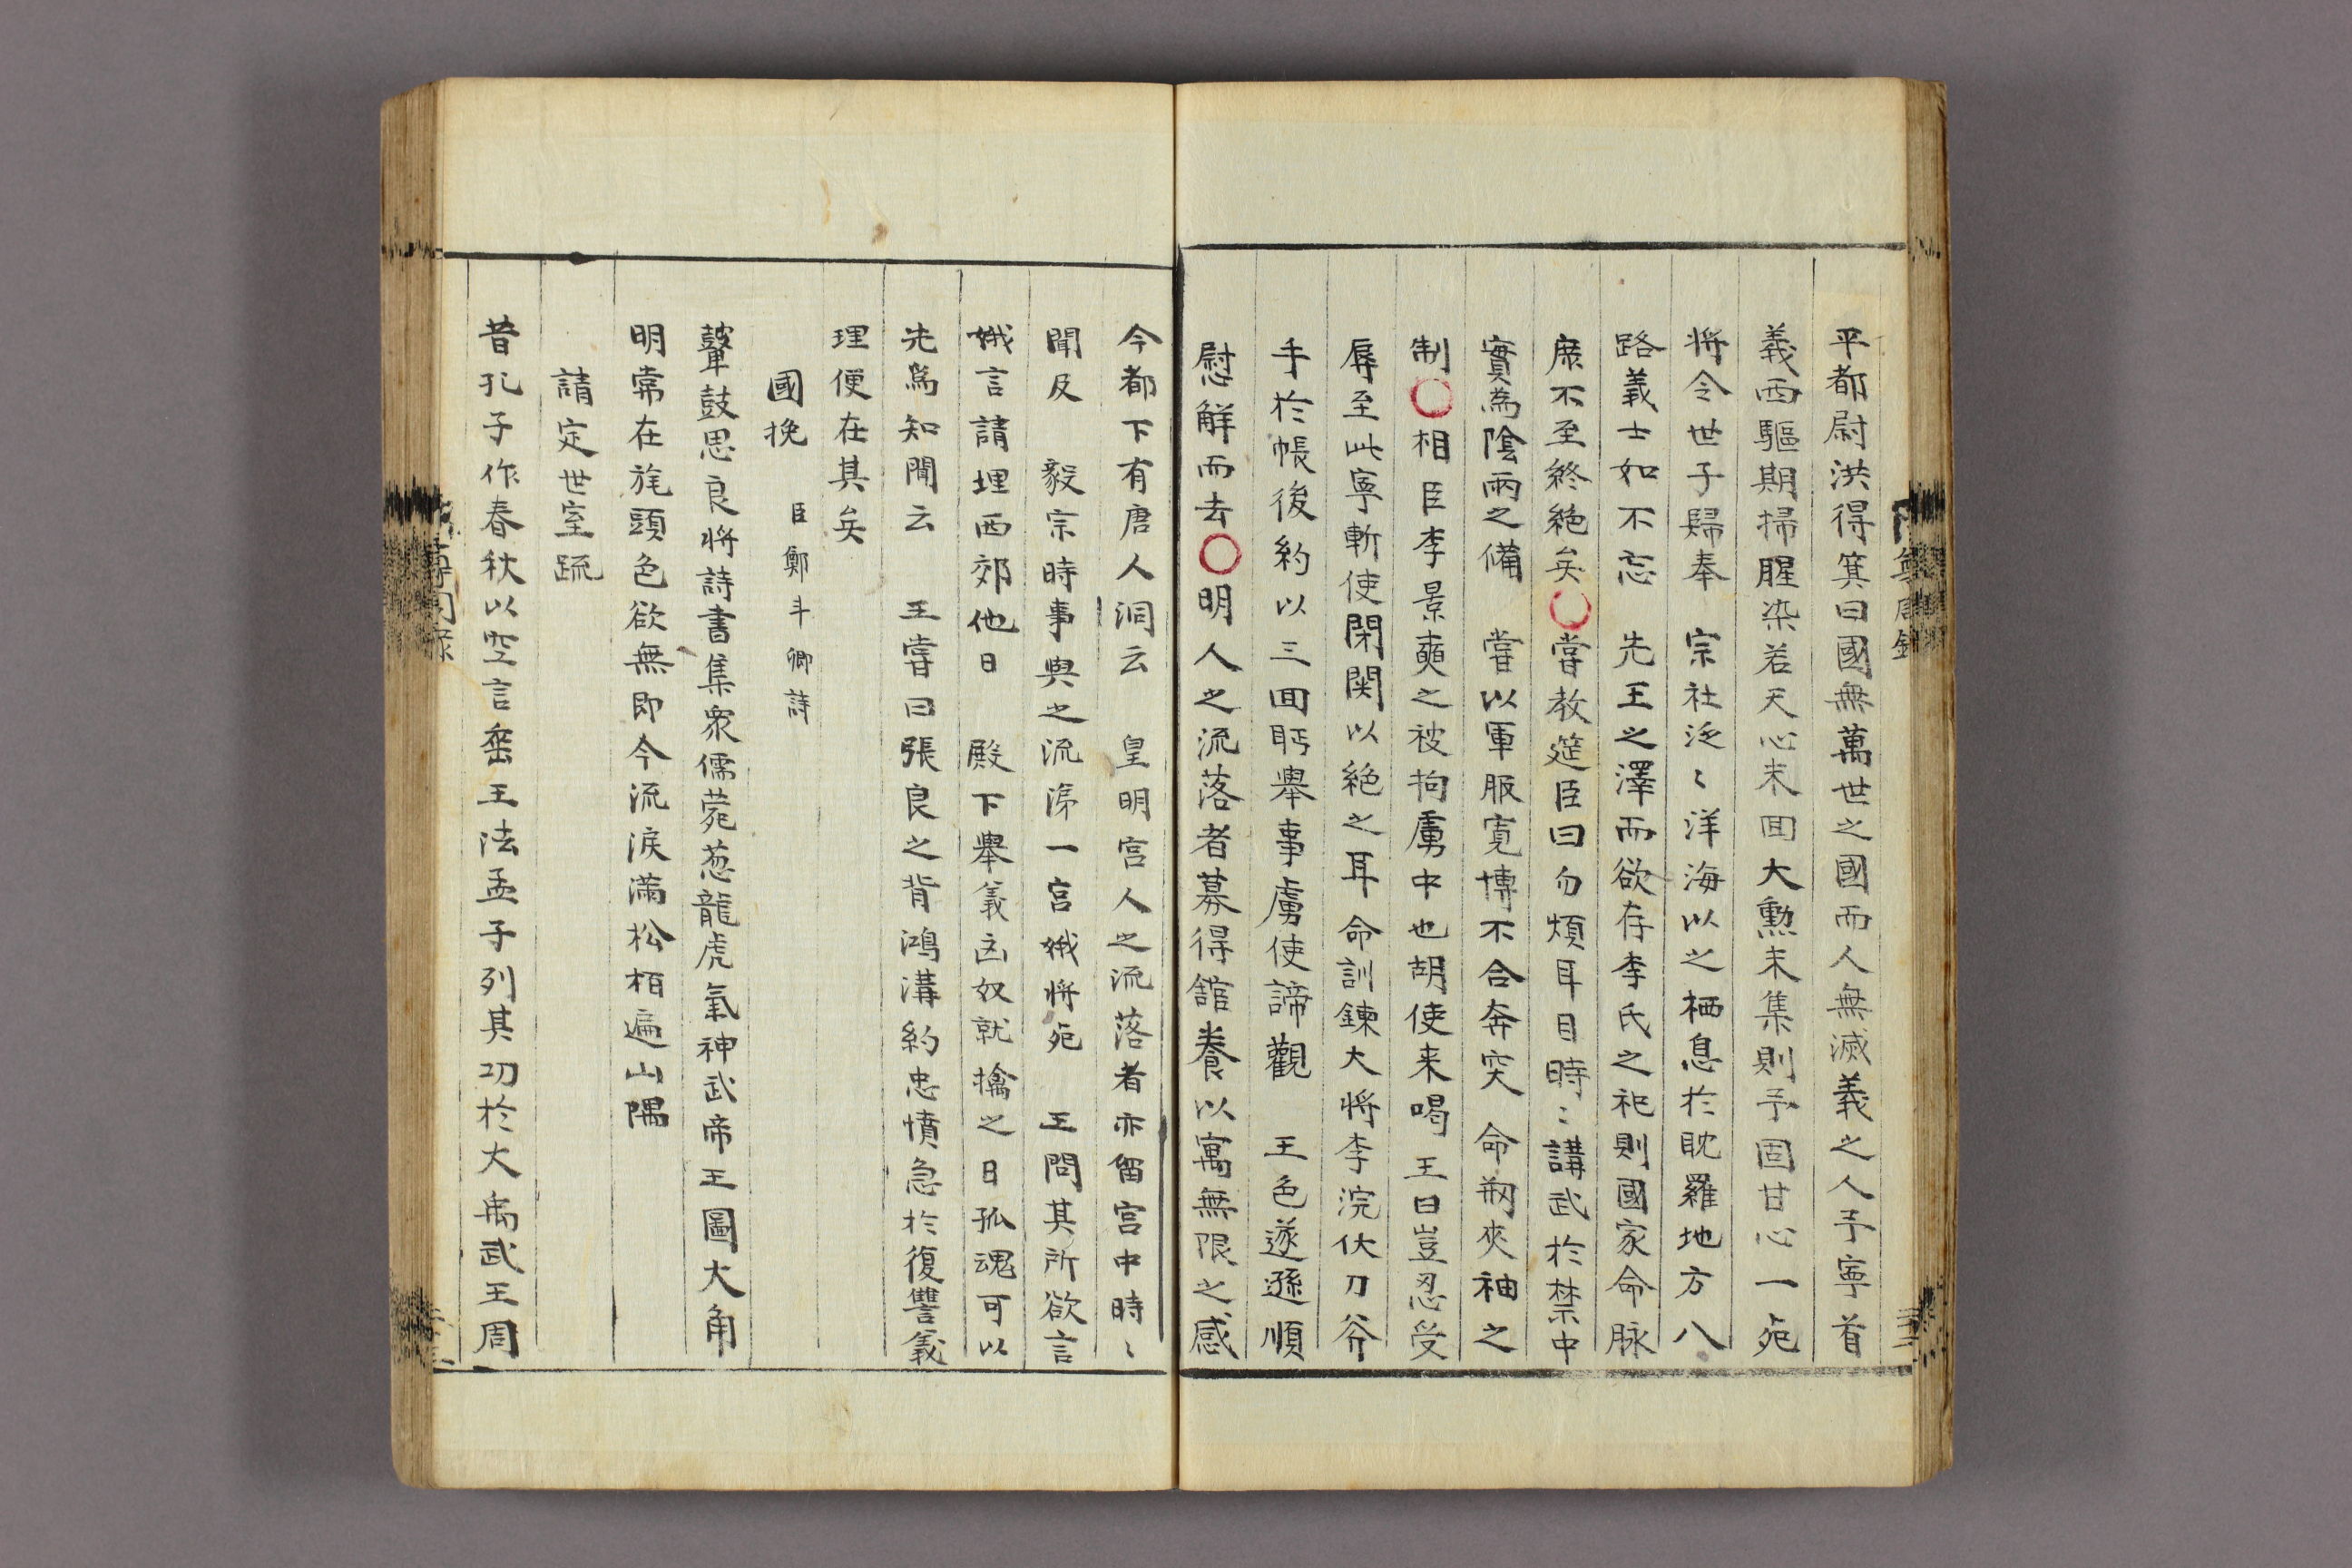 平都尉洪得箕曰國無萬世之國而人無滅義之人予寧首
義西驅期掃腥染若天心未回大勳未集則予固甘心一死
將令世子歸奉　宗社泛〻洋海以之栖息於耽羅地方八
路義士如不忘　先王之澤而欲存李氏之祀則國家命脉
庶不至終絶矣○嘗教筵臣曰勿煩耳目時〻講武於禁中
實爲陰雨之備　嘗以軍服寬博不合奔突　命剏夾袖之
制○相臣李景奭之被拘虜中也胡使来喝　王曰豈忍受
辱至此寧斬使閉関以絶之耳　命訓鍊大將李浣伏刀斧
手於帳後約以三回眄舉事虜使諦觀　王色遂遜順
慰解而去○明人之流落者募得舘養以寓無限之感
今都下有唐人洞云　皇明宮人之流落者亦留宮中時〻
聞及　毅宗時事與之流涕一宮娥將死　王問其所欲言
娥言請埋西郊他日　殿下舉義凶奴就擒之日孤魂可以
先爲知聞云　王嘗曰張良之背鴻溝約忠憤急於復讐義
理便在其矣
國挽　臣鄭斗卿詩
鼙鼓思良將詩書集衆儒菀葱龍虎氣神武帝王圖大角
明常在旄頭色欲無即今流淚滿松栢遍山隅
請定世室疏
昔孔子作春秋以空言垂王法孟子列其功於大禹武王周